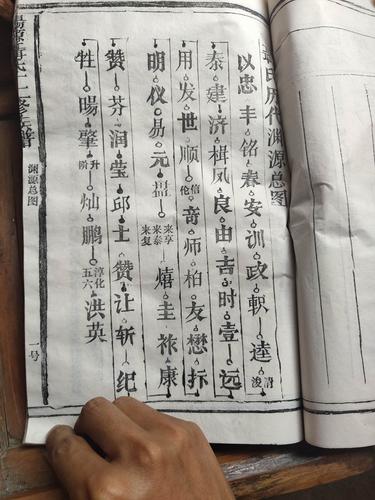 氏历代渊源总图
以忠丰铭春安训政軹逵清浚
泰建济楫风良由吉时壹远
用发世顺信伦竒师柏友懋
明仪易元来亨来泰来复熺圭康
赞芬润莹邱士赞让斩纪
牲暘肇升阶灿鹏淳化五六洪英
渊源总图
一号